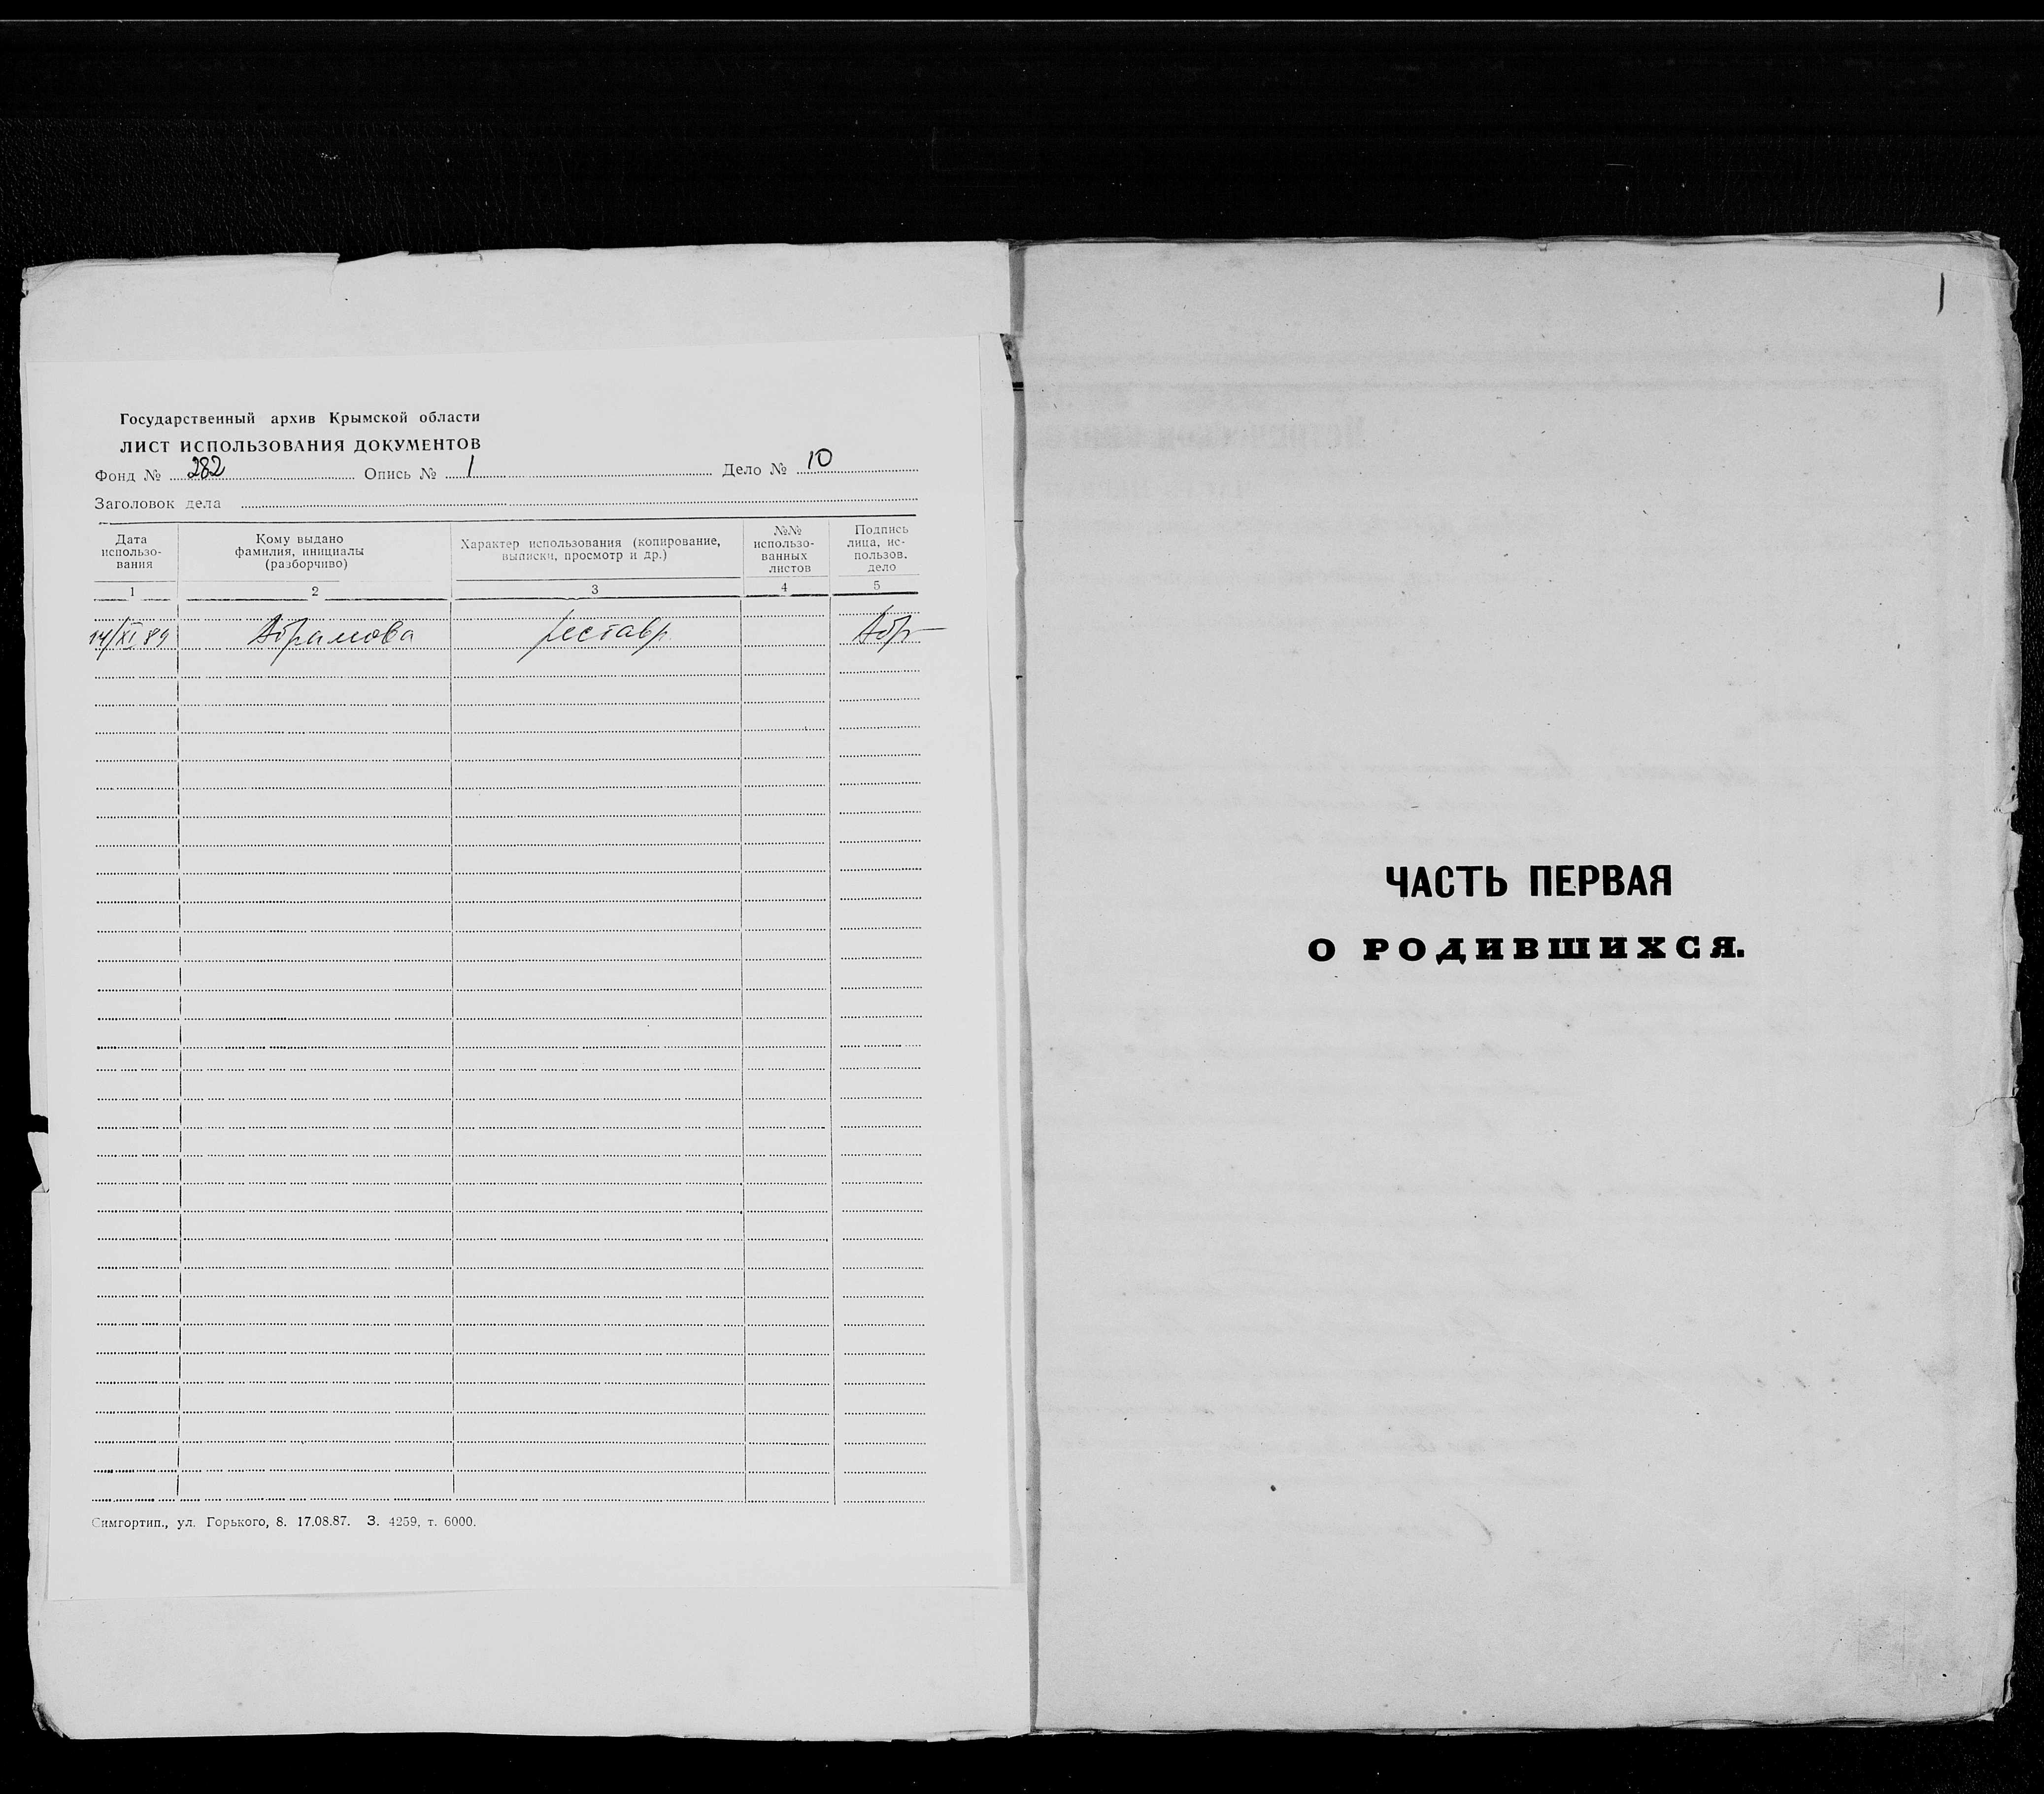 Государственный архив Крымской области
ЛИСТ ИСПОЛЬЗОВАНИЯ ДОКУМЕНТОВ
Фонд № 282 Опись № 1 Дело № 10
Заголовок дела
Дата использо-вания
Кому выдано фамилия, инициалы (разборчиво)
Характер использования (копирование, выписки, просмотр и др.)
№№ использо-ванных листов
Подпись лица, ис-пользов. дело
1 2 3 4 5
14/XI 89 Абрамова реставр. Абр
Симгортип., ул. Горького, 8. 17.08.87. З. 4259, т. 6000.
1
ЧАСТЬ ПЕРВАЯ
О РОДИВШИХСЯ.